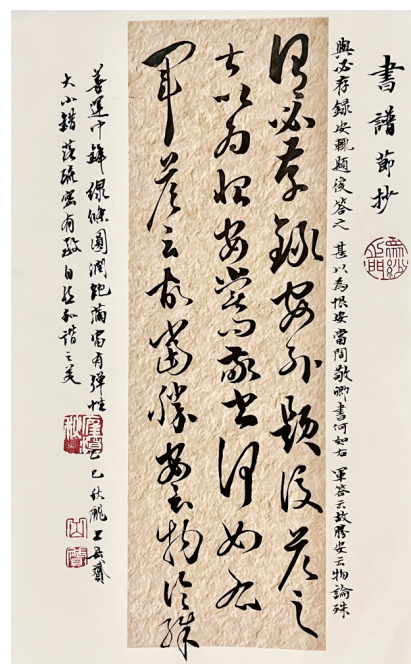 書譜節抄
與必存録安輒題後答之 甚以為恨安當問敬卿書何如右 軍答云故勝安云物論殊
謂必存録安輒題後答之
甚以為恨安嘗問敬卿書何如右
軍答云故當勝安云物論殊
善運中鋒線條圓潤飽滿富有彈性
大小錯落疏密有致自然和諧之美
乙巳秋